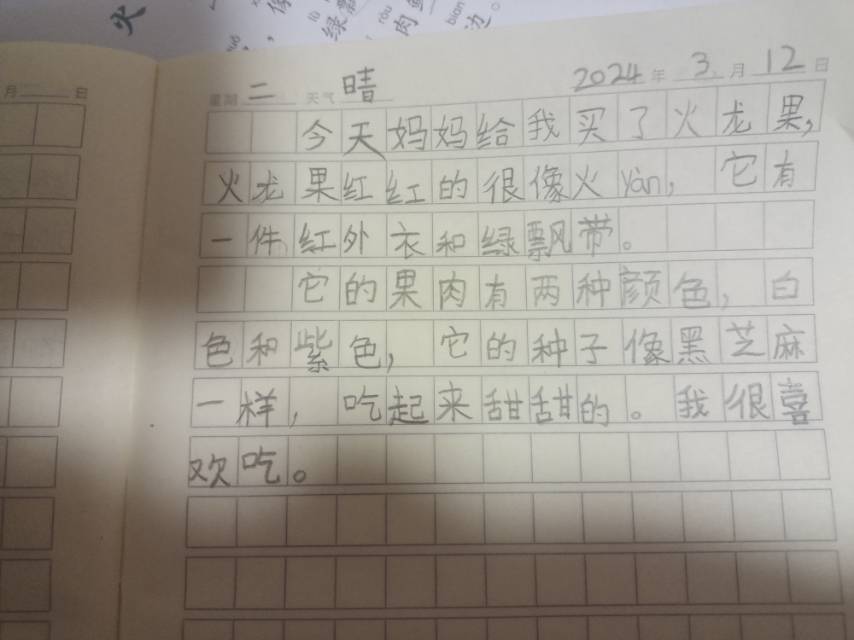 火
绿
ròu
肉
biān
边。
月 日
星期 二 天气 晴 2024 年 3 月 12 日
今天妈妈给我买了火龙果,
火龙果红红的很像火yàn,它有
一件红外衣和绿飘带。
它的果肉有两种颜色,白
色和紫色,它的种子像黑芝麻
一样,吃起来甜甜的。我很喜
欢吃。